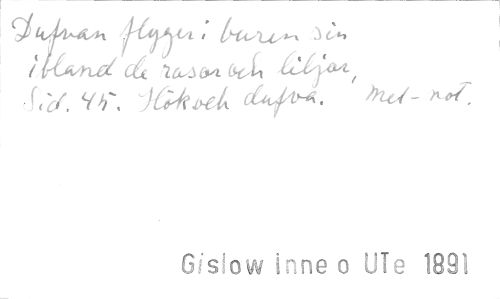 Dufvan flyger i buren sin
ibland de rosor och liljor,
Sid. 45. Hök och dufva. Met-not.
Gislow inne o UTe 1891